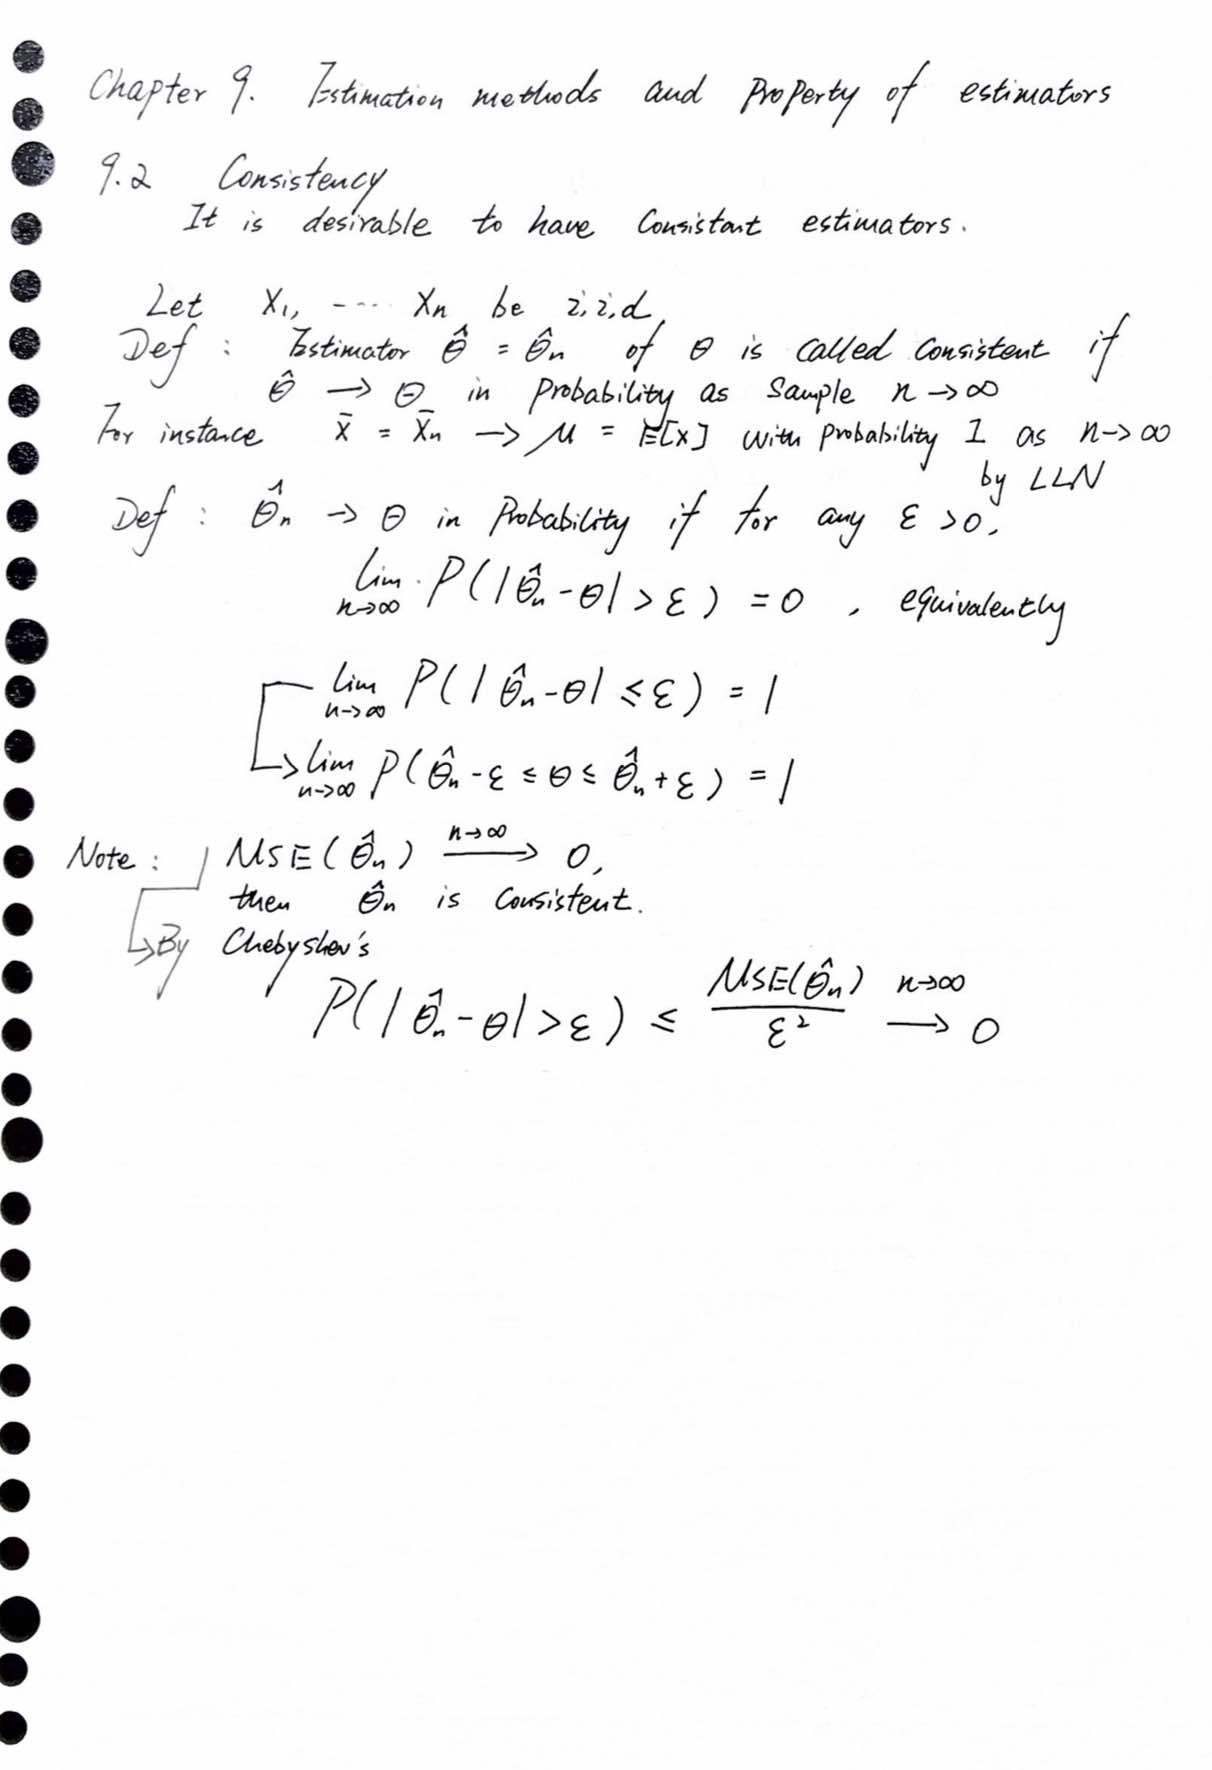 Chapter 9. Estimation methods and Property of estimators
9.2 Consistency
It is desirable to have Consistant estimators.
Let X₁, ---- Xn be i,i,d,
Def : Estimator θ̂ = θ̂n of θ is called Consistent if
θ̂ → θ in Probability as Sample n → ∞
For instance x̄ = x̄n → μ = E[x] with probability 1 as n → ∞
by LLN
Def : θ̂n → θ in Probability if for any ε > 0,
lim n→∞ P(|θ̂n - θ| > ε) = 0 , equivalently
lim n→∞ P(|θ̂n - θ| ≤ ε) = 1
lim n→∞ P(θ̂n - ε ≤ θ ≤ θ̂n + ε) = 1
Note : MSE(θ̂n) n→∞ → 0,
then θ̂n is Consistent.
By Chebyshev's
P(|θ̂n - θ| > ε) ≤ MSE(θ̂n) / ε² n→∞ → 0